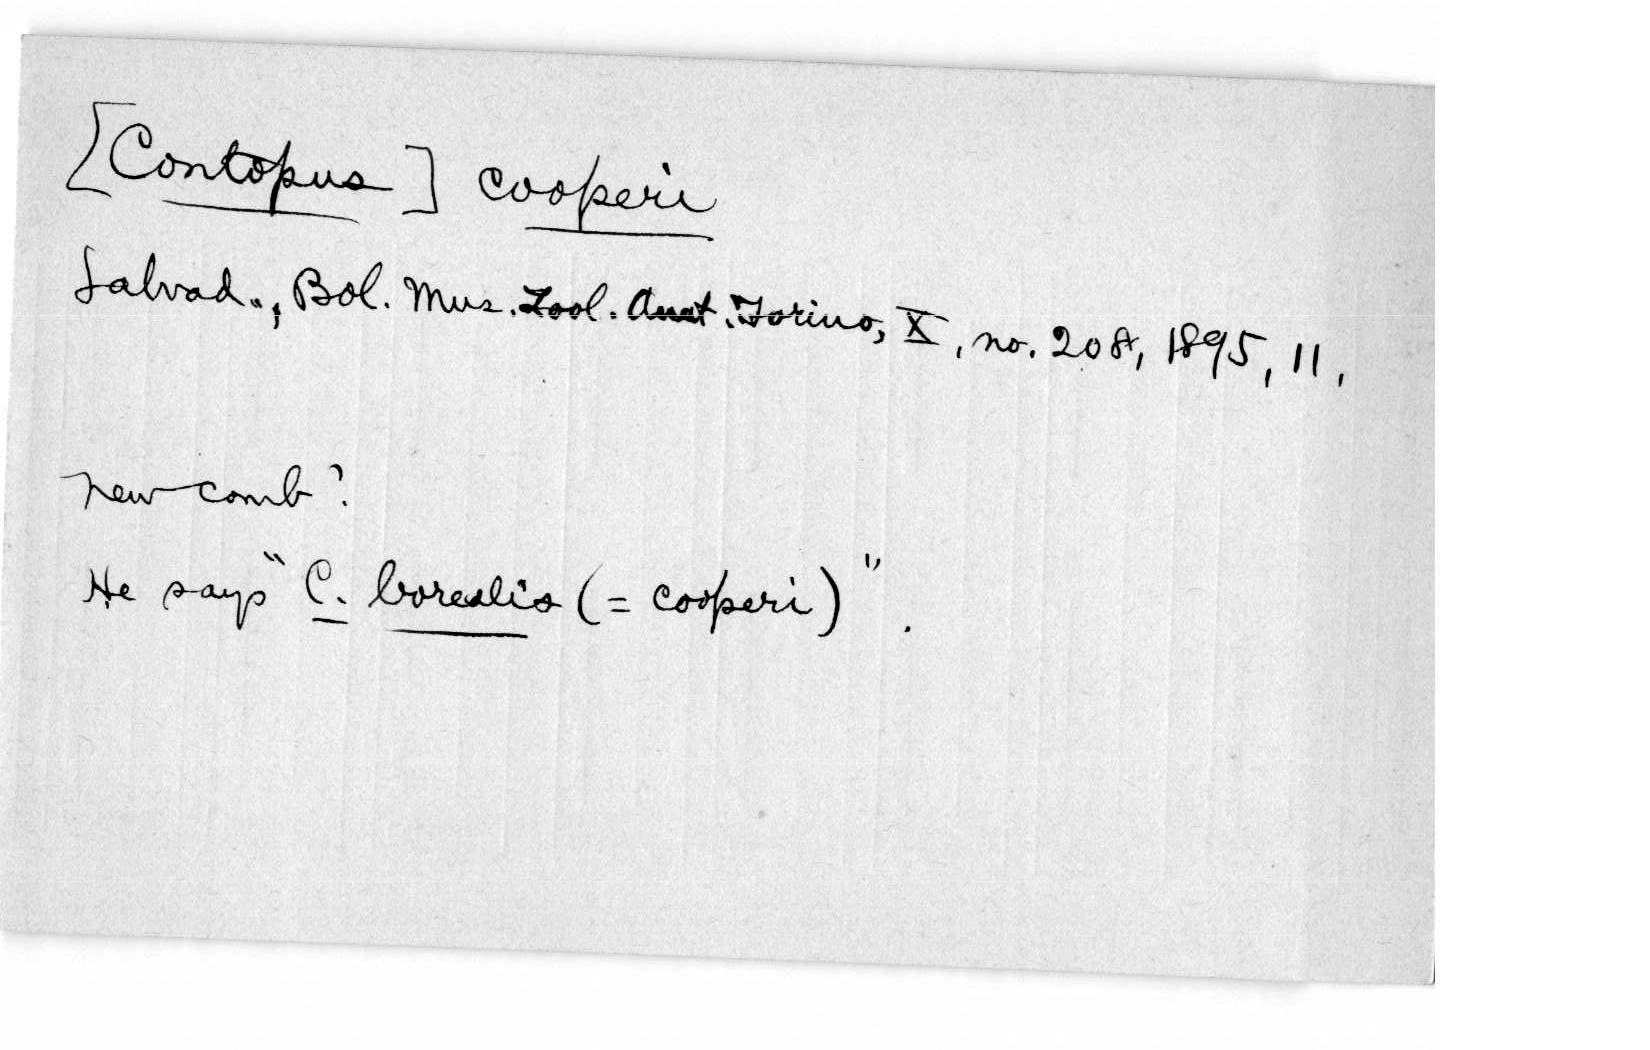 [Contopus] cooperi
Salvad., Bol. Mus. Zool. Anat. Torino, X, no. 208, 1895, 11.
new comb?
He says "C. borealis (= cooperi)".